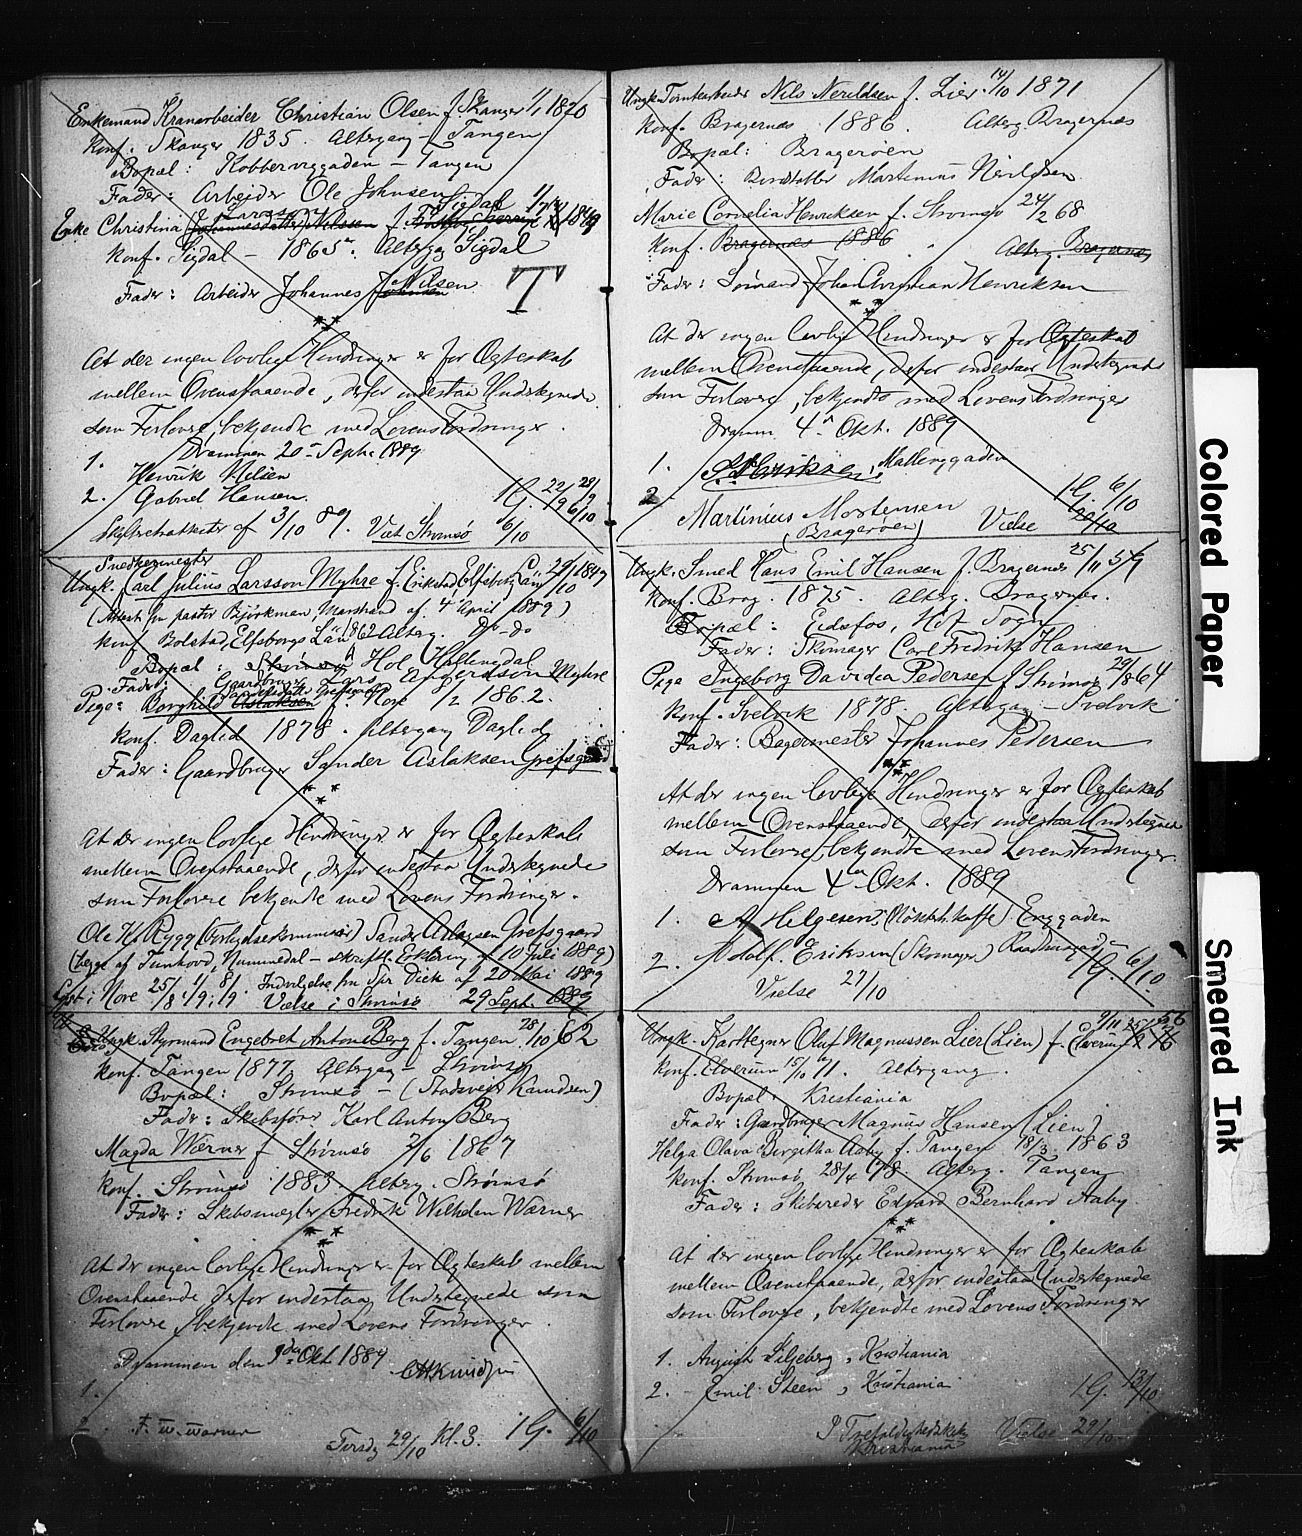 Enkemand Kranarbeider Christian Olsen f. Skanger 1/1 1820
Konf. Skanger 1835. Altergang - Tangen
Bopæl: Kobberviggaden - Tangen
Fader: Arbeider Ole Johnsen
Sigdal
Enke Christina Nilsen f. 1849
Konf. Sigdal - 1865. Alterg. Sigdal
Fader: Arbeider Johannes Nilsen
T
At der ingen lovlige Hindringer er for Ægteskab
mellem Ovenstaaende, derfor indestaa Undertegnede
som Forlovere, bekjendte med Lovens Fordringer.
Drammen 20 Septr. 1889
1. Henrik Nilsen
2. Gabriel Hansen.
Skiftretsattest af 3/10 89. Viet Strømsø 6/10
Snedkermester
Ungk. Carl Julius Larsson Myhre f. Elfsborg Län 29/10 1847
(Attest fra pastor Bjørkman, Marstrand af 4 April 1889)
Konf. Bolstad, Elfsborgs Län 1862 Alterg. Do - do
Bopæl: Strømsø Hol Hallingdal
Fader: Gaardbruger Lars Anderson Myhre
Pige: Borghild Aslaksen f. Nore 1/2 1862.
Konf. Daglid 1878. Altergang Daglid
Fader: Gaardbruger Sander Aslaksen Grefsgaard
At der ingen lovlige Hindringer er for Ægteskab
mellem Ovenstaaende, derfor indestaa Undertegnede
som Forlovere bekjendte med Lovens Fordringer.
Ole Ks Rygg Sander Aslaksen Grefsgaard
(begge af Tunhovd, Nummedal - skriftl. Erklæring af 10 Juli 1889)
Lyst i Nore 25/8 1/9 8/9. Indvilgelse fra Spr Dick af 20 Mai 1889
Vielse i Strømsø 29 Sept. 1889
Ungk. Styrmand Engebret Anton Berg f. Tangen 28/10 62
Konf. Tangen 1877 Altergang - Strømsø
Bopæl: Strømsø - (Stadsveier Knudsen)
Fader: Skibsfører Karl Anton Berg
Magda Wærner f. Strømsø 2/6 1867
Konf. Strømsø 1883. Alterg. Strømsø
Fader: Skibsmægler Fredrik Wilhelm Wærner
At der ingen lovlige Hindringer er for Ægteskab mellem
Ovenstaaende derfor indestaa Undertegnede som
Forlovere, bekjendte med Lovens Fordringer.
Drammen den Okt 1889
1.
2. F. W. Wærner
Tirsdg 29/10 Kl. 3. 1 G. 6/10
Ungk. Tomtearbeider Nils Nerildsen f. Lier 14/10 1871
Konf. Bragernæs 1886. Alterg. Bragernæs
Bopæl: Bragerøen
Fader: Martinius Nerildsen
Marie Cornelia Henriksen f. Strømsø 24/2 68
Konf. Bragernæs 1886 Alterg. Bragernæs
Fader: Sømand Johan Christian Henriksen
At der ingen lovlige Hindringer er for Ægteskab
mellem Ovenstaaende, derfor indestaar Undertegnede
som Forlovere, bekjendte med Lovens Fordringer
Dramm 4 Okt. 1889
1. Møllenggaden
2. Martinius Mortensen
(Bragerøen) Vielse
1 G. 6/10
20/10
Ungk. Smed Hans Emil Hansen f. Bragernæs 25/11 57
Konf. Brag. 1875. Alterg. Bragernæs.
Bopæl: Eidsfos, Hof Sogn
Fader: Skomager Carl Fredrik Hansen
Pige Ingeborg Davidea Pedersen f. Strømsø 29/8 64
Konf. Svelvik 1878. Altergang - Svelvik
Fader: Bagermester Johannes Pedersen
At der ingen lovlige Hindringer er for Ægteskab
mellem Ovenstaaende derfor indestaa Undertegnede
som Forlovere, bekjendte med Lovens Fordringer.
Drammen 4 Okt. 1889
1. A Helgesen, Enggaden
2. Adolf Eriksen (Skomager)
1 G. 6/10
Vielse 27/10
Ungk. Karttegner Oluf Magnussen Lier (Lien) f. Elverum
Konf. Elverum 15/10 71. Altergang.
Bopæl. Kristiania
Fader: Gaardbruger Magnus Hansen (Lien)
Helga Olava Birgitha Aaby f. Tangen 18/3 1863
Konf. Strømsø 28/4 78. Alterg. Tangen
Fader: Skibsreder Edvard Bernhard Aaby
At der ingen lovlige Hindringer er for Ægteskab
mellem Ovenstaaende, derfor indestaa Undertegnede
som Forlovere, bekjendte med Lovens Fordringer
1. August Liljeberg, Kristiania
2. Emil Steen, Kristiania
1 G. 13/10
I Trefoldighedskirk. Vielse 29/10
Kristiania
Colored Paper
Smeared Ink